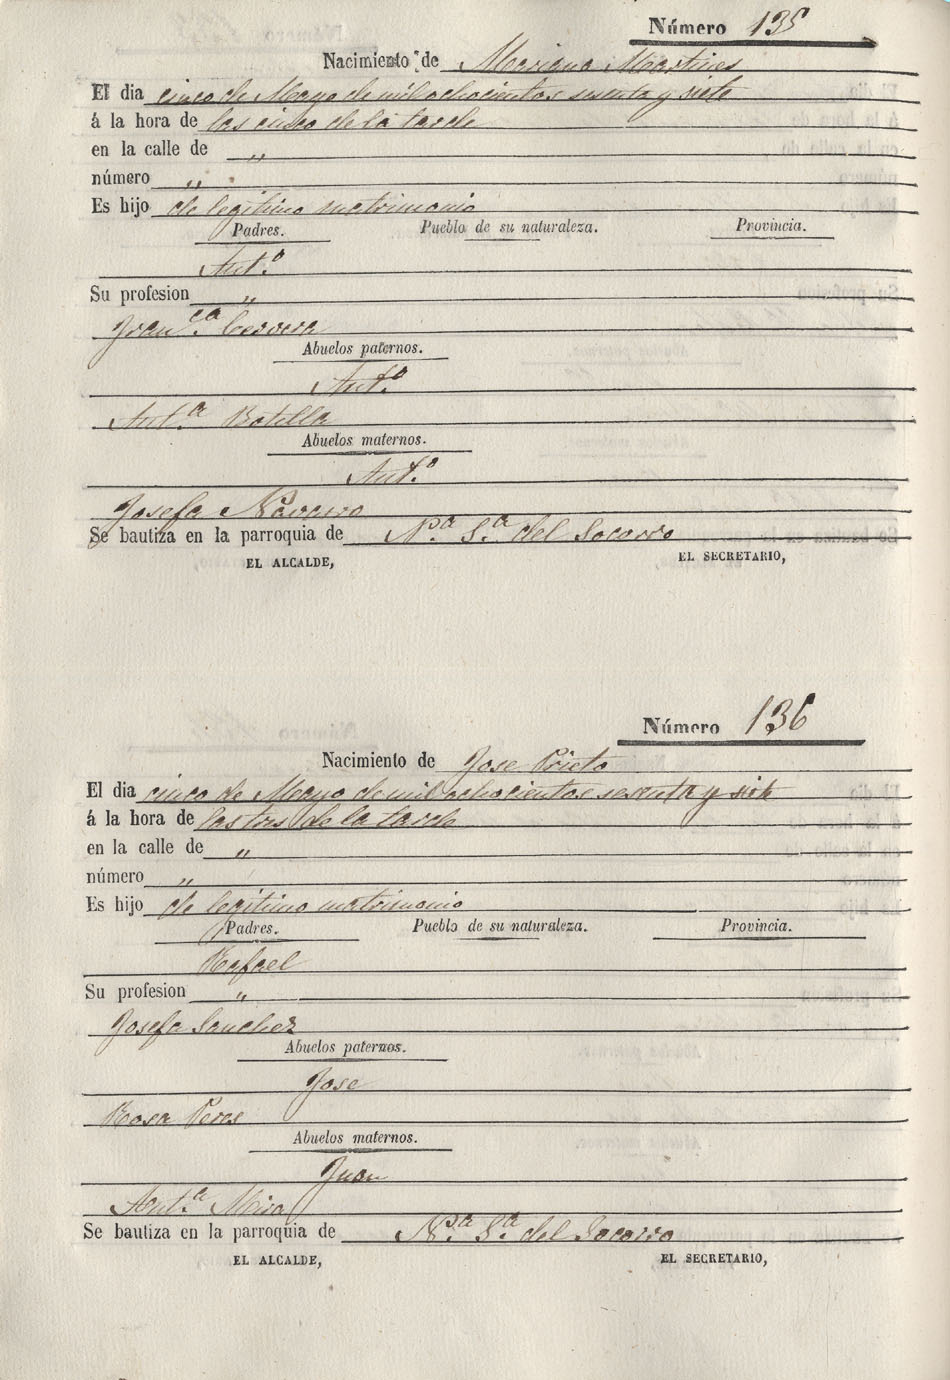 Número 135
Nacimiento de Mariana Martines
El dia cinco de Mayo de mil ochocientos sesenta y siete
á la hora de las cinco de la tarde
en la calle de „
número „
Es hijo de legitimo matrimonio
Padres. Pueblo de su naturaleza. Provincia.
Ant.º
Su profesion „
Fran.ca Cervera
Abuelos paternos.
Ant.º
Ant.a Botella
Abuelos maternos.
Ant.º
Josefa Navarro
Se bautiza en la parroquia de N.a S.a del Socorro
EL ALCALDE, EL SECRETARIO,
Número 136
Nacimiento de Jose Prieto
El dia cinco de Mayo de mil ochocientos sesenta y siete
á la hora de las tres de la tarde
en la calle de „
número „
Es hijo de legitimo matrimonio
Padres. Pueblo de su naturaleza. Provincia.
Rafael
Su profesion „
Josefa Sanchez
Abuelos paternos.
Jose
Rosa Peres
Abuelos maternos.
Juan
Ant.a Mira
Se bautiza en la parroquia de N.a S.a del Socorro
EL ALCALDE, EL SECRETARIO,